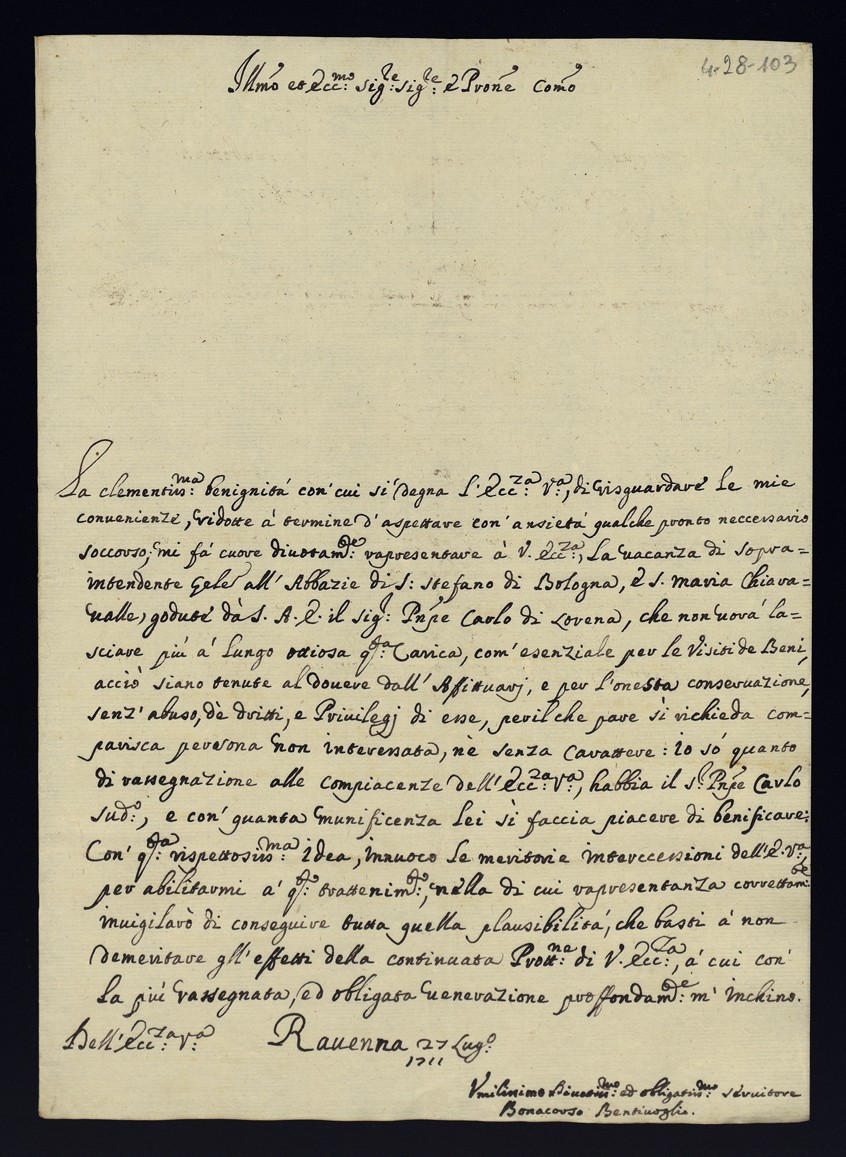 4-28-103
Illmo et Ecc:mo Sig:re Sig:re e Prone Como
La clementiss:ma benignitá con' cui si degna l'Ecc:za V:a, di risguardare le mie
convenienze, ridotte á termine d'aspettare con' ansietá qualche pronto neccessario
soccorso; mi fá cuore divotam:te rapresentare á V. Ecc:za, la vacanza di sopra=
intendente Gen̄le all'Abbazie di S: Stefano di Bologna, é S. Maria Chiara=
valle, godute dá S. A. E. il Sig:r Pnpe Carlo di Lorena, che non vorá la=
sciare piú á lungo ottiosa q:ta Carica, com' esenziale per le Visiti de Beni,
acció siano tenute al dovere dall'Affittuarj, e per l'onesta conservazione,
senz'abuso, dè dritti, e Privilegj di esse, peril che pare si richieda com=
parisca persona non interessata, nè senza Carattere: io só quanto
di rassegnazione alle compiacenze dell'Ecc:za V:a, habbia il S:r Pnpe Carlo
Sud:o, e con' quanta munificenza lei si faccia piacere di benificare:
Con' q:ta rispettosiss:ma idea, innuoco le meritorie interccessioni dell'E. V:a,
per abilitarmi a' q:to trattenim:to, nella di cui rapresentanza correttam:te
invigilaró di conseguire tutta quella plausibilitá, che basti á non
demeritare gll'effetti della continuata Prott:ne di V. Ecc:za, á cui con'
la piú rassegnata, ed obligata venerazione proffondam:te m'inchino.
Dell'Ecc:za V:a Ravenna 27 Lug:o
1711
Vmilissimo Divotiss:mo ed obligatiss:mo servitore
Bonacorso Bentivoglio.